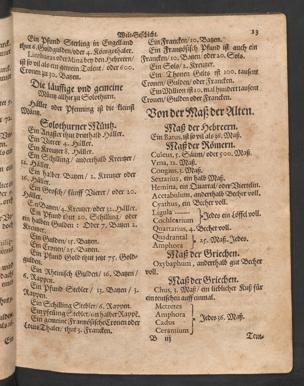 Welt-Geschicht. 23
Ein Pfund Sterling in Engelland
thut 6. Goldgulden/oder 4. Königsthaler.
ist so vil als ein gemein Talent / oder 600.
Cronen zu 30. Batzen.
Die läuffige und gemeine
Müntz allhie zu Solothurn.
Häller oder Pfenning ist die kleinst
Müntz.
Solothurner Müntz.
Ein Angster thut
Ein Vierer 4. Häller.
Ein Kreutzer 8. Häller.
Ein Schilling / anderhalb Kreutzer /
12. Häller.
Ein halber Batzen / 2. Kreutzer oder
16. Häller.
Ein Grosch / fünff Vierer / oder 20.
Häller.
Ein Batzen / 4. Kreutzer / oder 32. Häller.
Ein Pfund thut 10. Schilling / oder
ein halber Gulden : Oder 7. Batzen 2.
Kreutzer.
Ein Gulden 15. Batzen.
Ein Cronen / 25. Batzen.
Ein Pfund Gold thut 
Gold-
gulden.
Ein Rheinisch Gulden / 16. Batzen /
Ein Pfund Stebler / 
Batzen / 3.
Kreutzer.
Ein Schilling Stebler / 6. Rappen.
Ein gemeine Französische Cronen oder
Louis Thaler / thut 3. Francken.
Ein Francken / 10. Batzen.
Ein Französisch Pfund ist auch ein
Francken / 10. Batzen / oder 20. Sols.
Ein Sols / 2. Kreutzer.
Ein Thonen Golts ist 100. tausent
Cronen / Gulden oder Francken.
Ein Million ist 10. mal hundert tausent
Cronen / Gulden oder Francken.
Von der Maß der Alten.
Maß der Hebreern.
Ein Batus, ist so vil als 36. Maß.
Maß der Römern.
Culeus, 5. Säum / oder 500. Maß.
Urna, 12. Maß.
Congius, 3. Maß.
Sextarius, ein halb Maß.
Hemina, ein Quartal / oder Viertelin.
Acetabulum, anderhalb Becher voll.
Cyathus, ein Becher voll.
Ligula
Cochlearium
} Jedes ein Löffel voll.
Quartarius, 4. Becher voll.
Quadrantal
Amphora
} 25. Maß. Jedes.
Maß der Griechen.
Oxybaphum, anderhalb
Becher
voll.
Maß der Griechen.
Chus, 3. Maß / ein lieblicher Kuß für
Metretes
Amphora
Cadus
Ceramium
} Jedes 36. Maß.
B iij